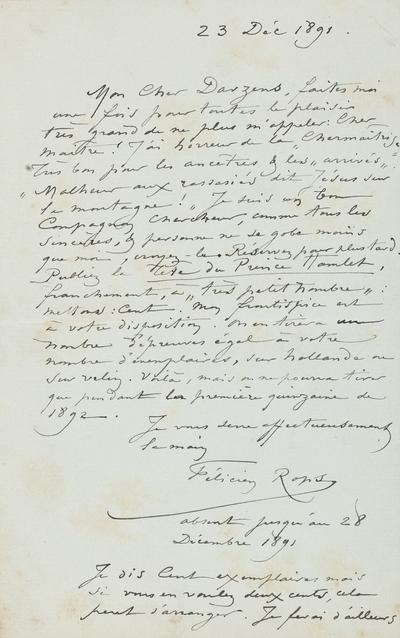 23 Déc 1891.
Mon Cher Darzens, faites moi
une fois pour toutes le plaisir
très grand de ne plus m'appeler: Cher
maître! J'ai horreur de la "Chermaîtrise".
Très bon pour les ancêtres & les "arrivés".
"Malheur aux rassasiés dit Jésus sur
la montagne!" Je suis un bon
Compagnon Chercheur, comme tous les
sincères, & personne ne se gobe moins
que moi, croyez-le. Réservez pour plus tard.
Publiez le Tête du Prince Hamlet,
franchement, à "très petit nombre":
mettons: Cent. Mon frontispice est
à votre disposition. On en tirera un
nombre d'épreuves égal à votre
nombre d'exemplaires, sur hollande ou
sur velin. Voilà, mais on ne pourra tirer
que pendant la première quinzaine de
1892.
Je vous serre affectueusement
la main
Félicien Rops
absent jusqu'au 28
Décembre 1891
Je dis Cent exemplaires mais
si vous en voulez deux cents, cela
peut s'arranger. Je ferai d'ailleurs